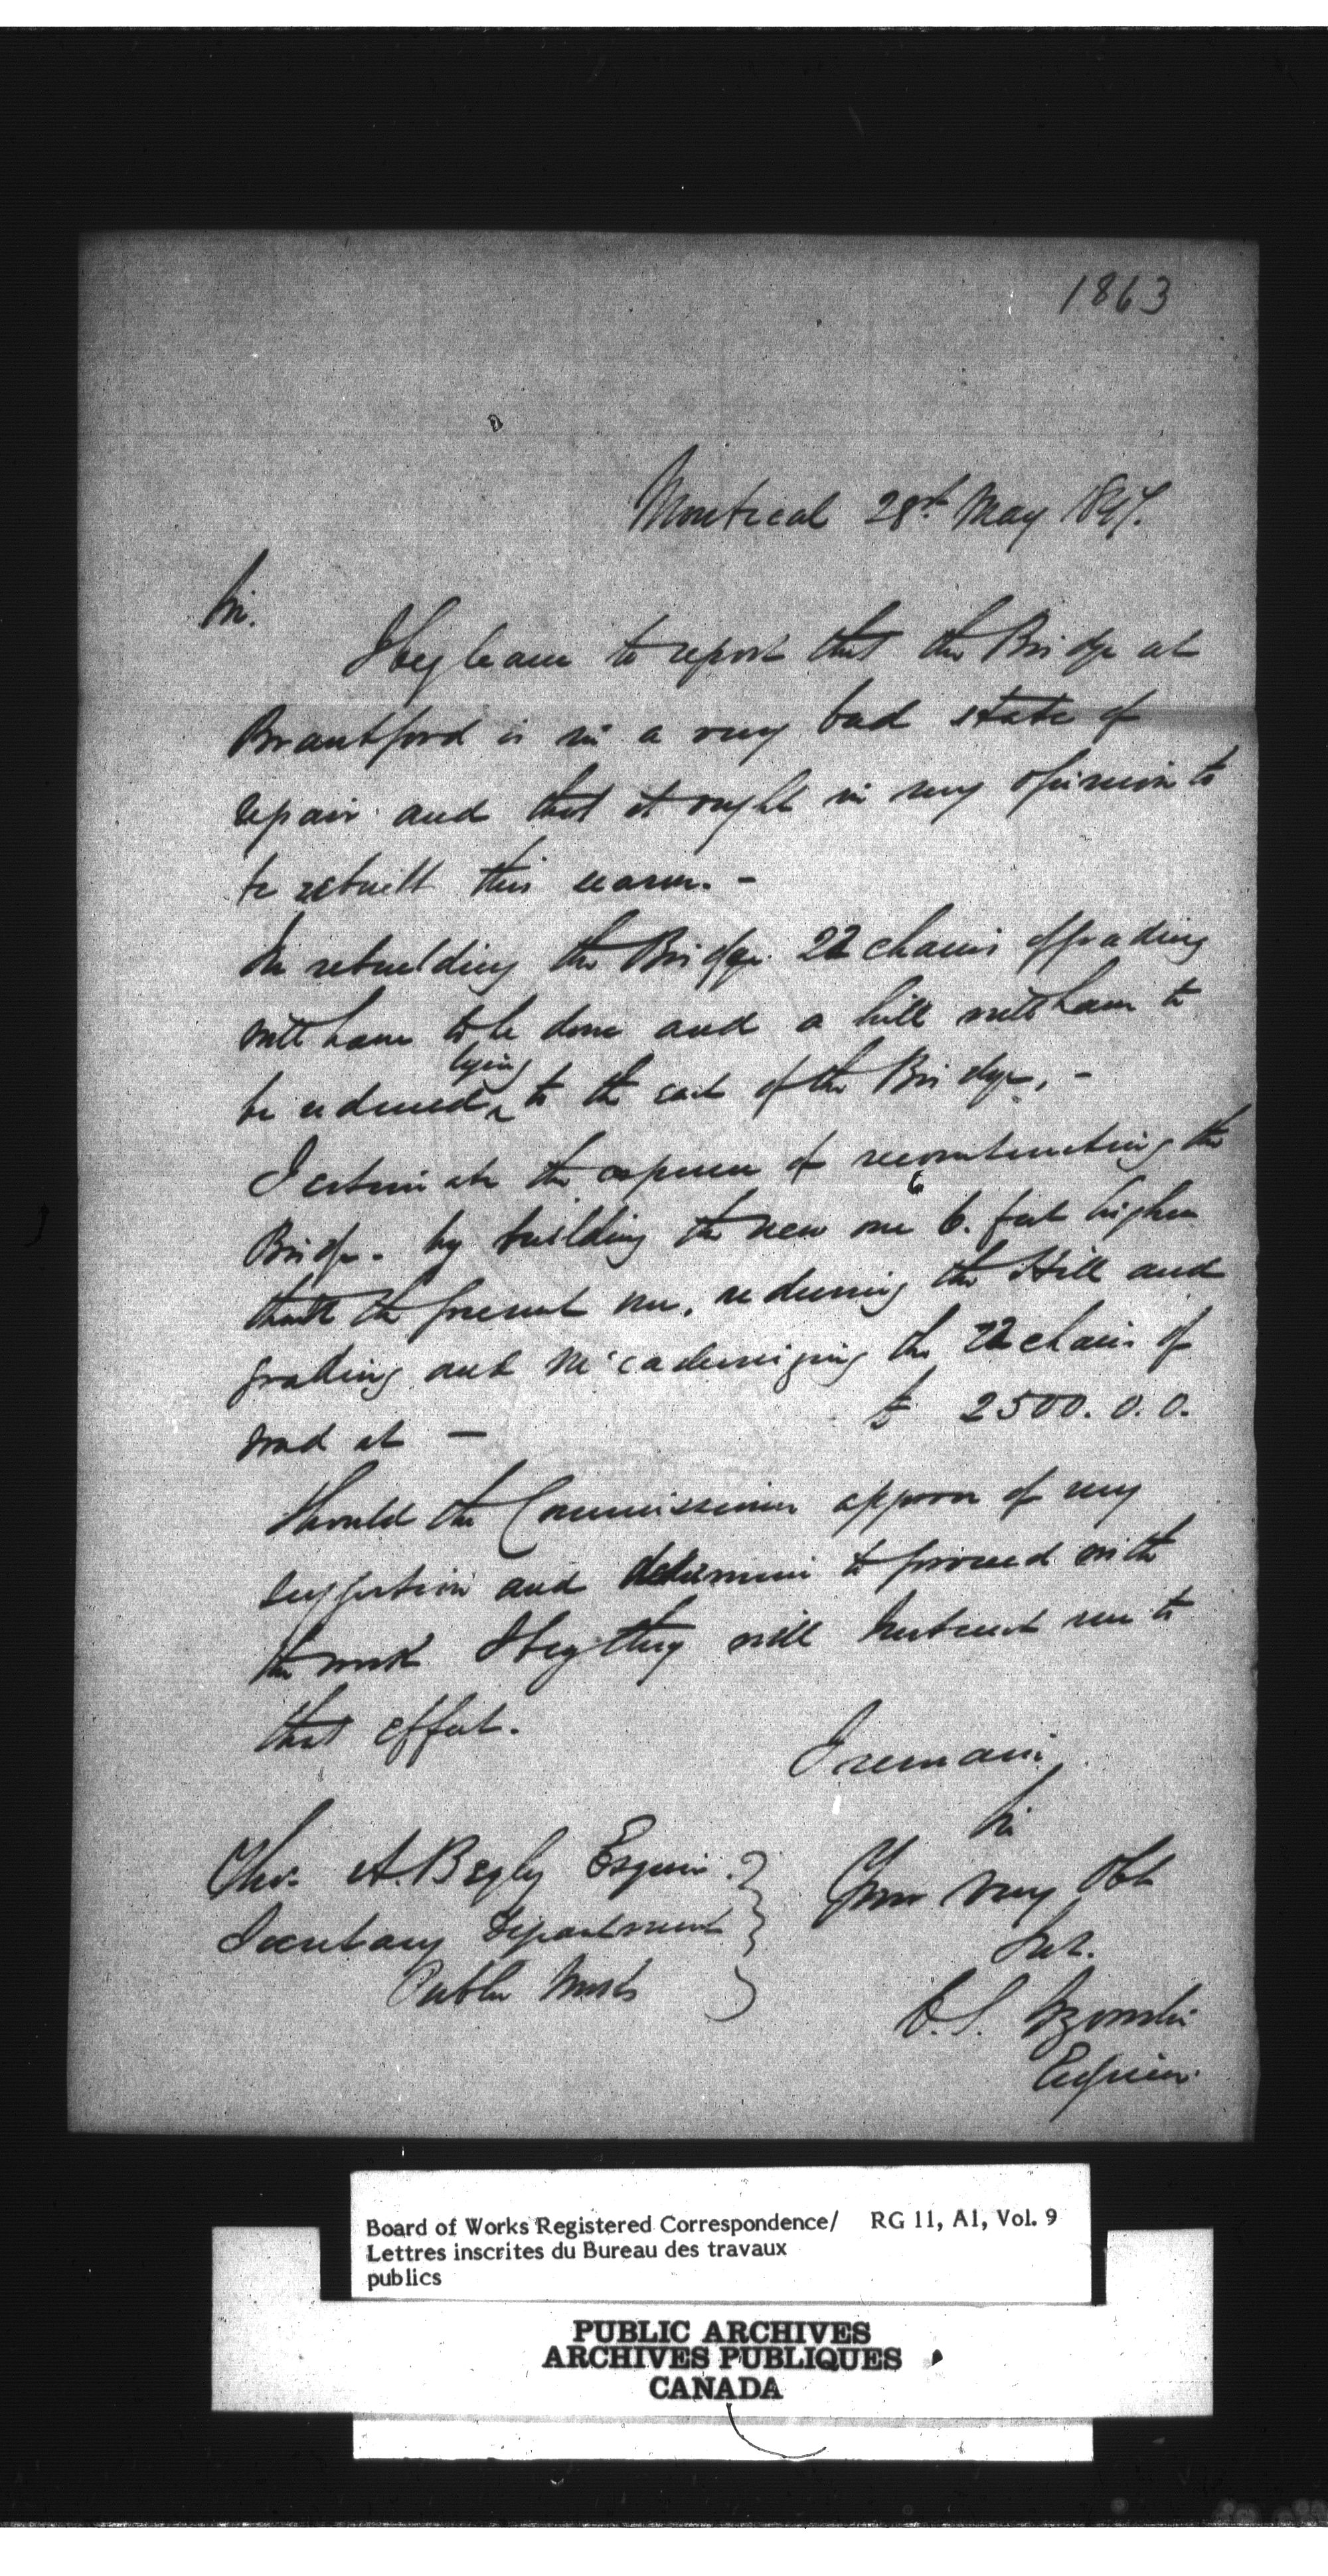 1863
Montreal 28th May 1847.
Sir.
I beg leave to report that the Bridge at
Brantford is in a very bad state of
repair and that it ought in my opinion to
be rebuilt this season. -
In rebuilding the Bridge 22 chains of grading
will have to be done and a hill will have to
lying
be reduced ^ to the east of the Bridge. -
I estimate the expense of reconstructing the
6
Bridge - by building the new one 6. feet higher
than the present one, reducing the Hill and
grading and McCadamizing the 22 chains of
road at — £ 2500. 0. 0.
Should the Commissioner approve of my
suggestion and determine to proceed with
the work I beg they will instruct me to
that effect.
I remain
Sir
Thos. A. Begly Esquire
Your very Obt
Secretary Department
Ser.
Public Works
C. S. Gzowski
Engineer.
Board of Works Registered Correspondence/ RG 11, A1, Vol. 9
Lettres inscrites du Bureau des travaux
publics
PUBLIC ARCHIVES
ARCHIVES PUBLIQUES
CANADA